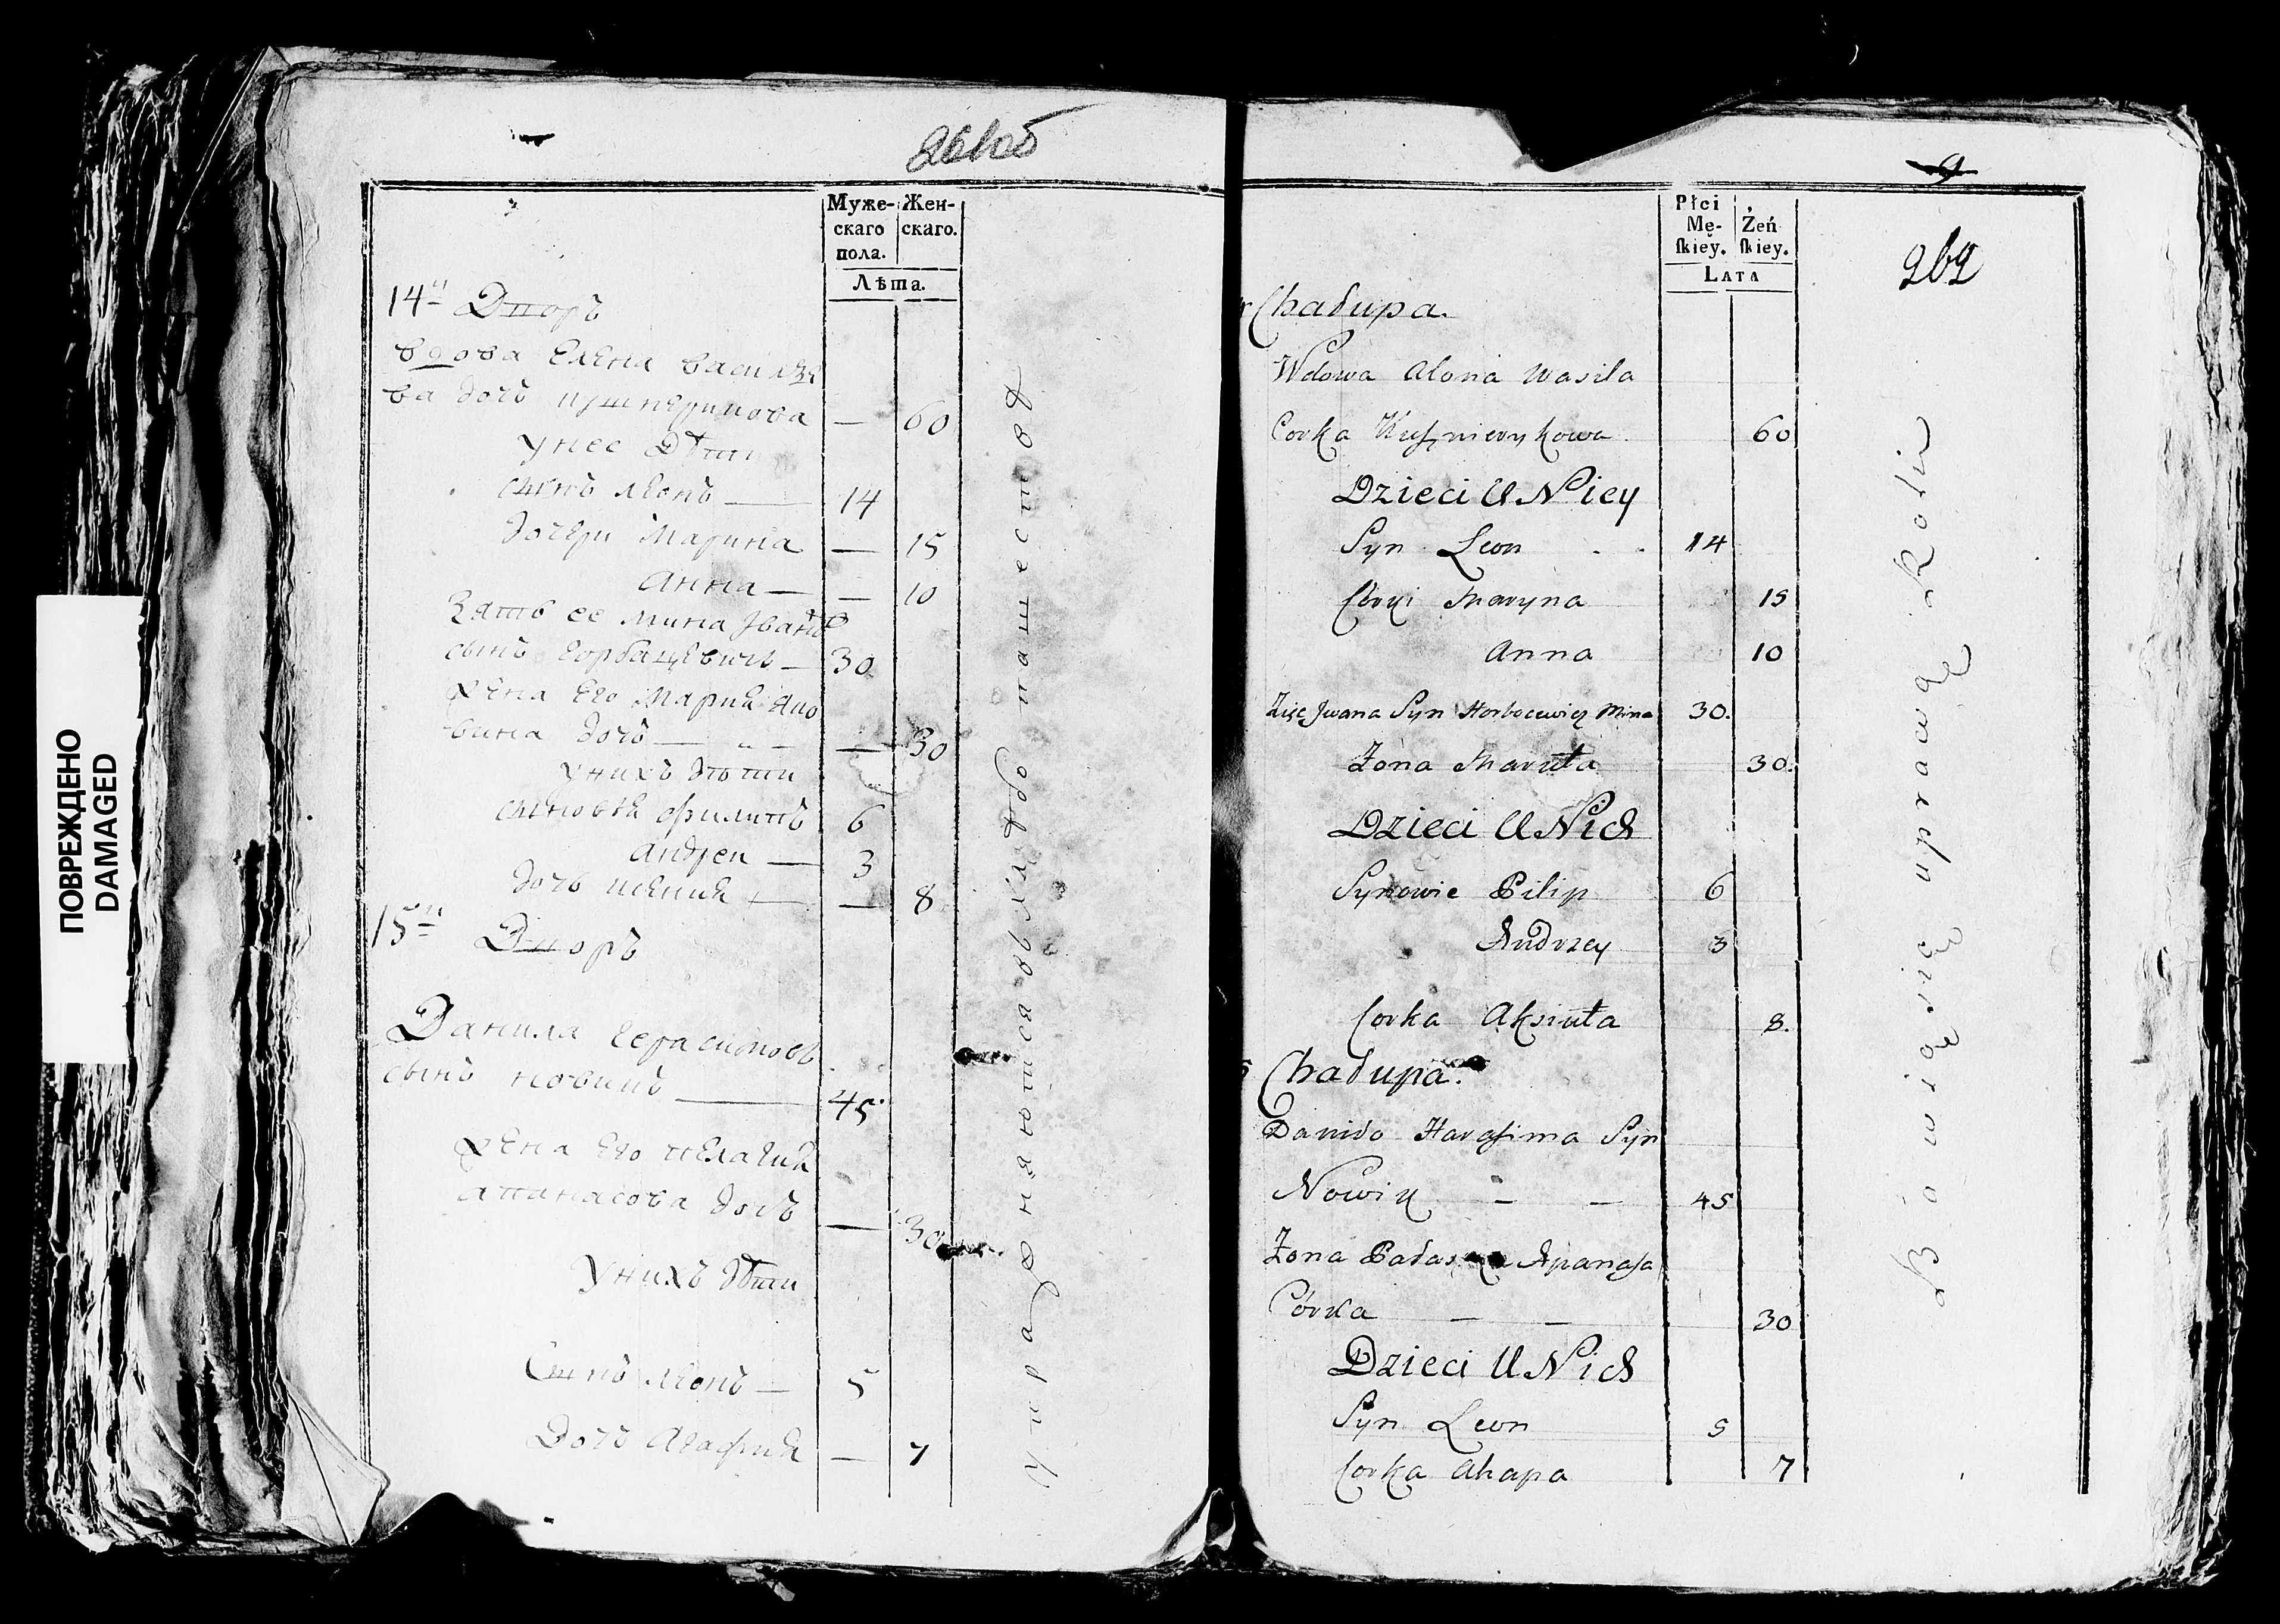 ПОВРЕЖДЕНО
DAMAGED
261об
Муже-
скаго
пола.
Жен-
скаго.
Лѣта.
14й Дворъ
вдова Елена василье
ва дочь кушнерикова — 60
унес Дѣти
сынъ леонъ — 14
дочери Марина — 15
Анна — — 10
Зять ее мина Іванъ
сынъ Горбацевичъ — 30
жена его Мария Яко
вина дочь — — 30
унихъ дѣти
сыновья филипъ 6
андреи — 3
дочь ксения — — 8
15й Дворъ
Данила герасимовъ
сынъ новикъ — 45
жена его пелагия
апанасова дочь — 30
унихъ дѣти
Сынъ леонъ — 5
Дочь Агафия — 7
упражняются въ хлѣбопашествѣ
9
262
Płci
Mę-
skiey.
Żeń
skiey.
Lata
Chałupa.
Wdowa Alona Wasila
Corka Kusznierykowa. 60
Dzieci U Niey
Syn Leon . . 14
Córki Maryna 15
Anna 10
Zięć Jwana Syn Horbacewicz Mina 30.
Żona Maruta 30.
Dzieci U Nich
Synowie Pilip 6
Andrzey 3
Corka Aksiuta 8.
5 Chałupa.
Daniło Harasima Syn
Nowik — — 45
Żona Apanasa
Córka — — 30
Dzieci U Nich
Syn Leon 5
Corka Ahapa 7
Bawią się uprawą Roli